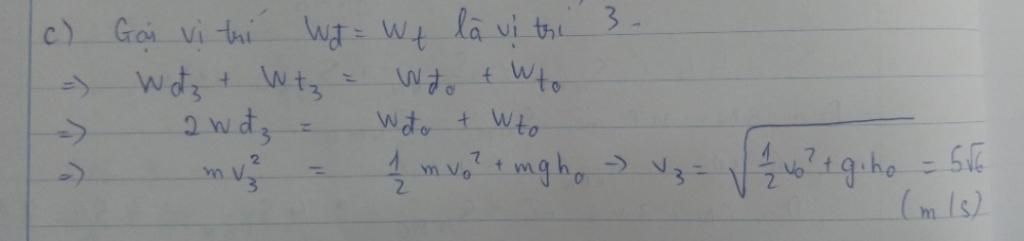 c) Gọi vị trí Wđ = Wt là vị trí 3.
=> Wđ₃ + Wt₃ = Wđ₀ + Wt₀
=> 2Wđ₃ = Wđ₀ + Wt₀
=> mv₃² = 1/2 mv₀² + mgh₀ → v₃ = √(1/2 v₀² + g.h₀) = 5√6
(m/s)